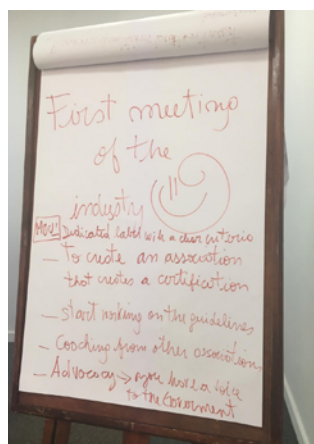 First meeting
of the
industry
Dedicated label with a clear criteria
— To create an association
that creates a certification
— start working on the guidelines
— Coaching from other associations
— Advocacy → you have a voice
to the Goverment